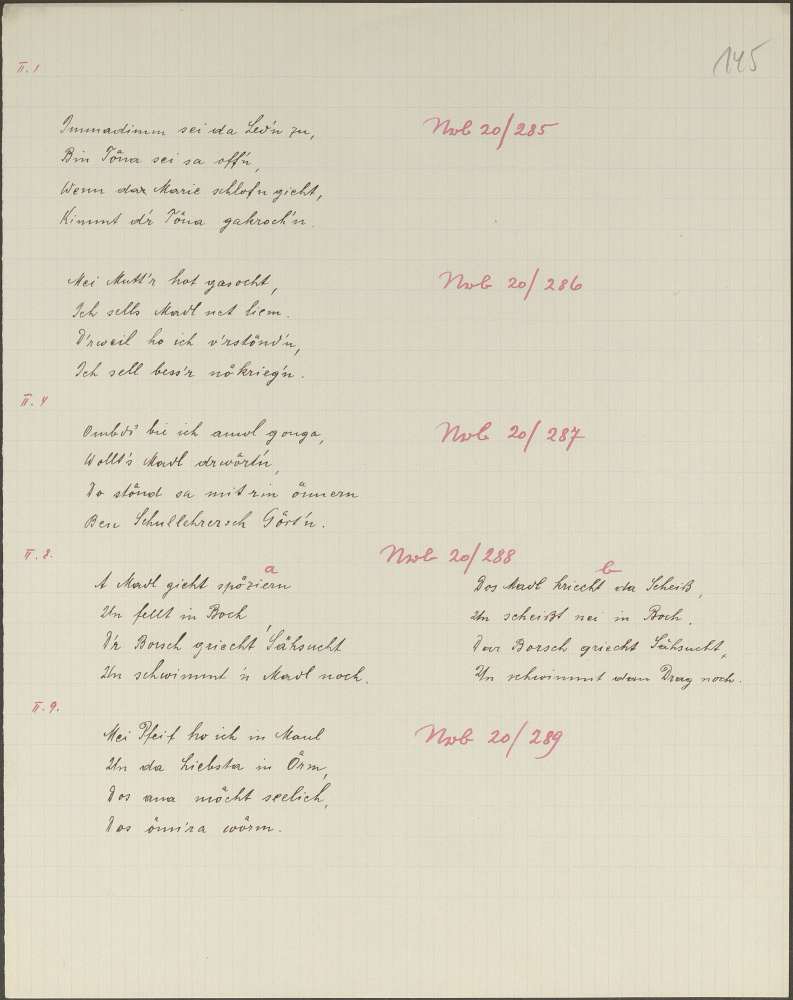 145
II. 1
Immadimm sei da Led'n zu,
Nvb 20/285
Bin Töna sei sa off'n,
Wenn dar Marie schlof'n gieht,
Kimmt d'r Töna gakroch'n.
Mei Mutt'r hot gasocht,
Nvb 20/286
Ich sells Madl net liem.
D'rweil ho ich v'rständ'n,
Ich sell bess'r nåkrieg'n.
II. 4
bie ich amol gonga,
Nvb 20/287
Wollt's Madl drwört'n,
Do ständ sa mit rin ännern
Ben Schullehrersch Gört'n.
II. 8.
Nvb 20/288
a
A Madl gieht spåziern
Un fellt in Boch
D'r Borsch griecht Sähsucht
Un schwimmt 'n Madl noch.
b
Dos Madl kriecht da Scheiß,
Un scheißt nei in Boch.
Dar Borsch griecht Sähsucht,
Un schwimmt dan Drag noch.
II. 9.
Mei Pfeif ho ich in Maul
Nvb 20/289
Un da Liebsta in Örm,
Dos ana möcht seelich,
Dos änn'ra wörm.